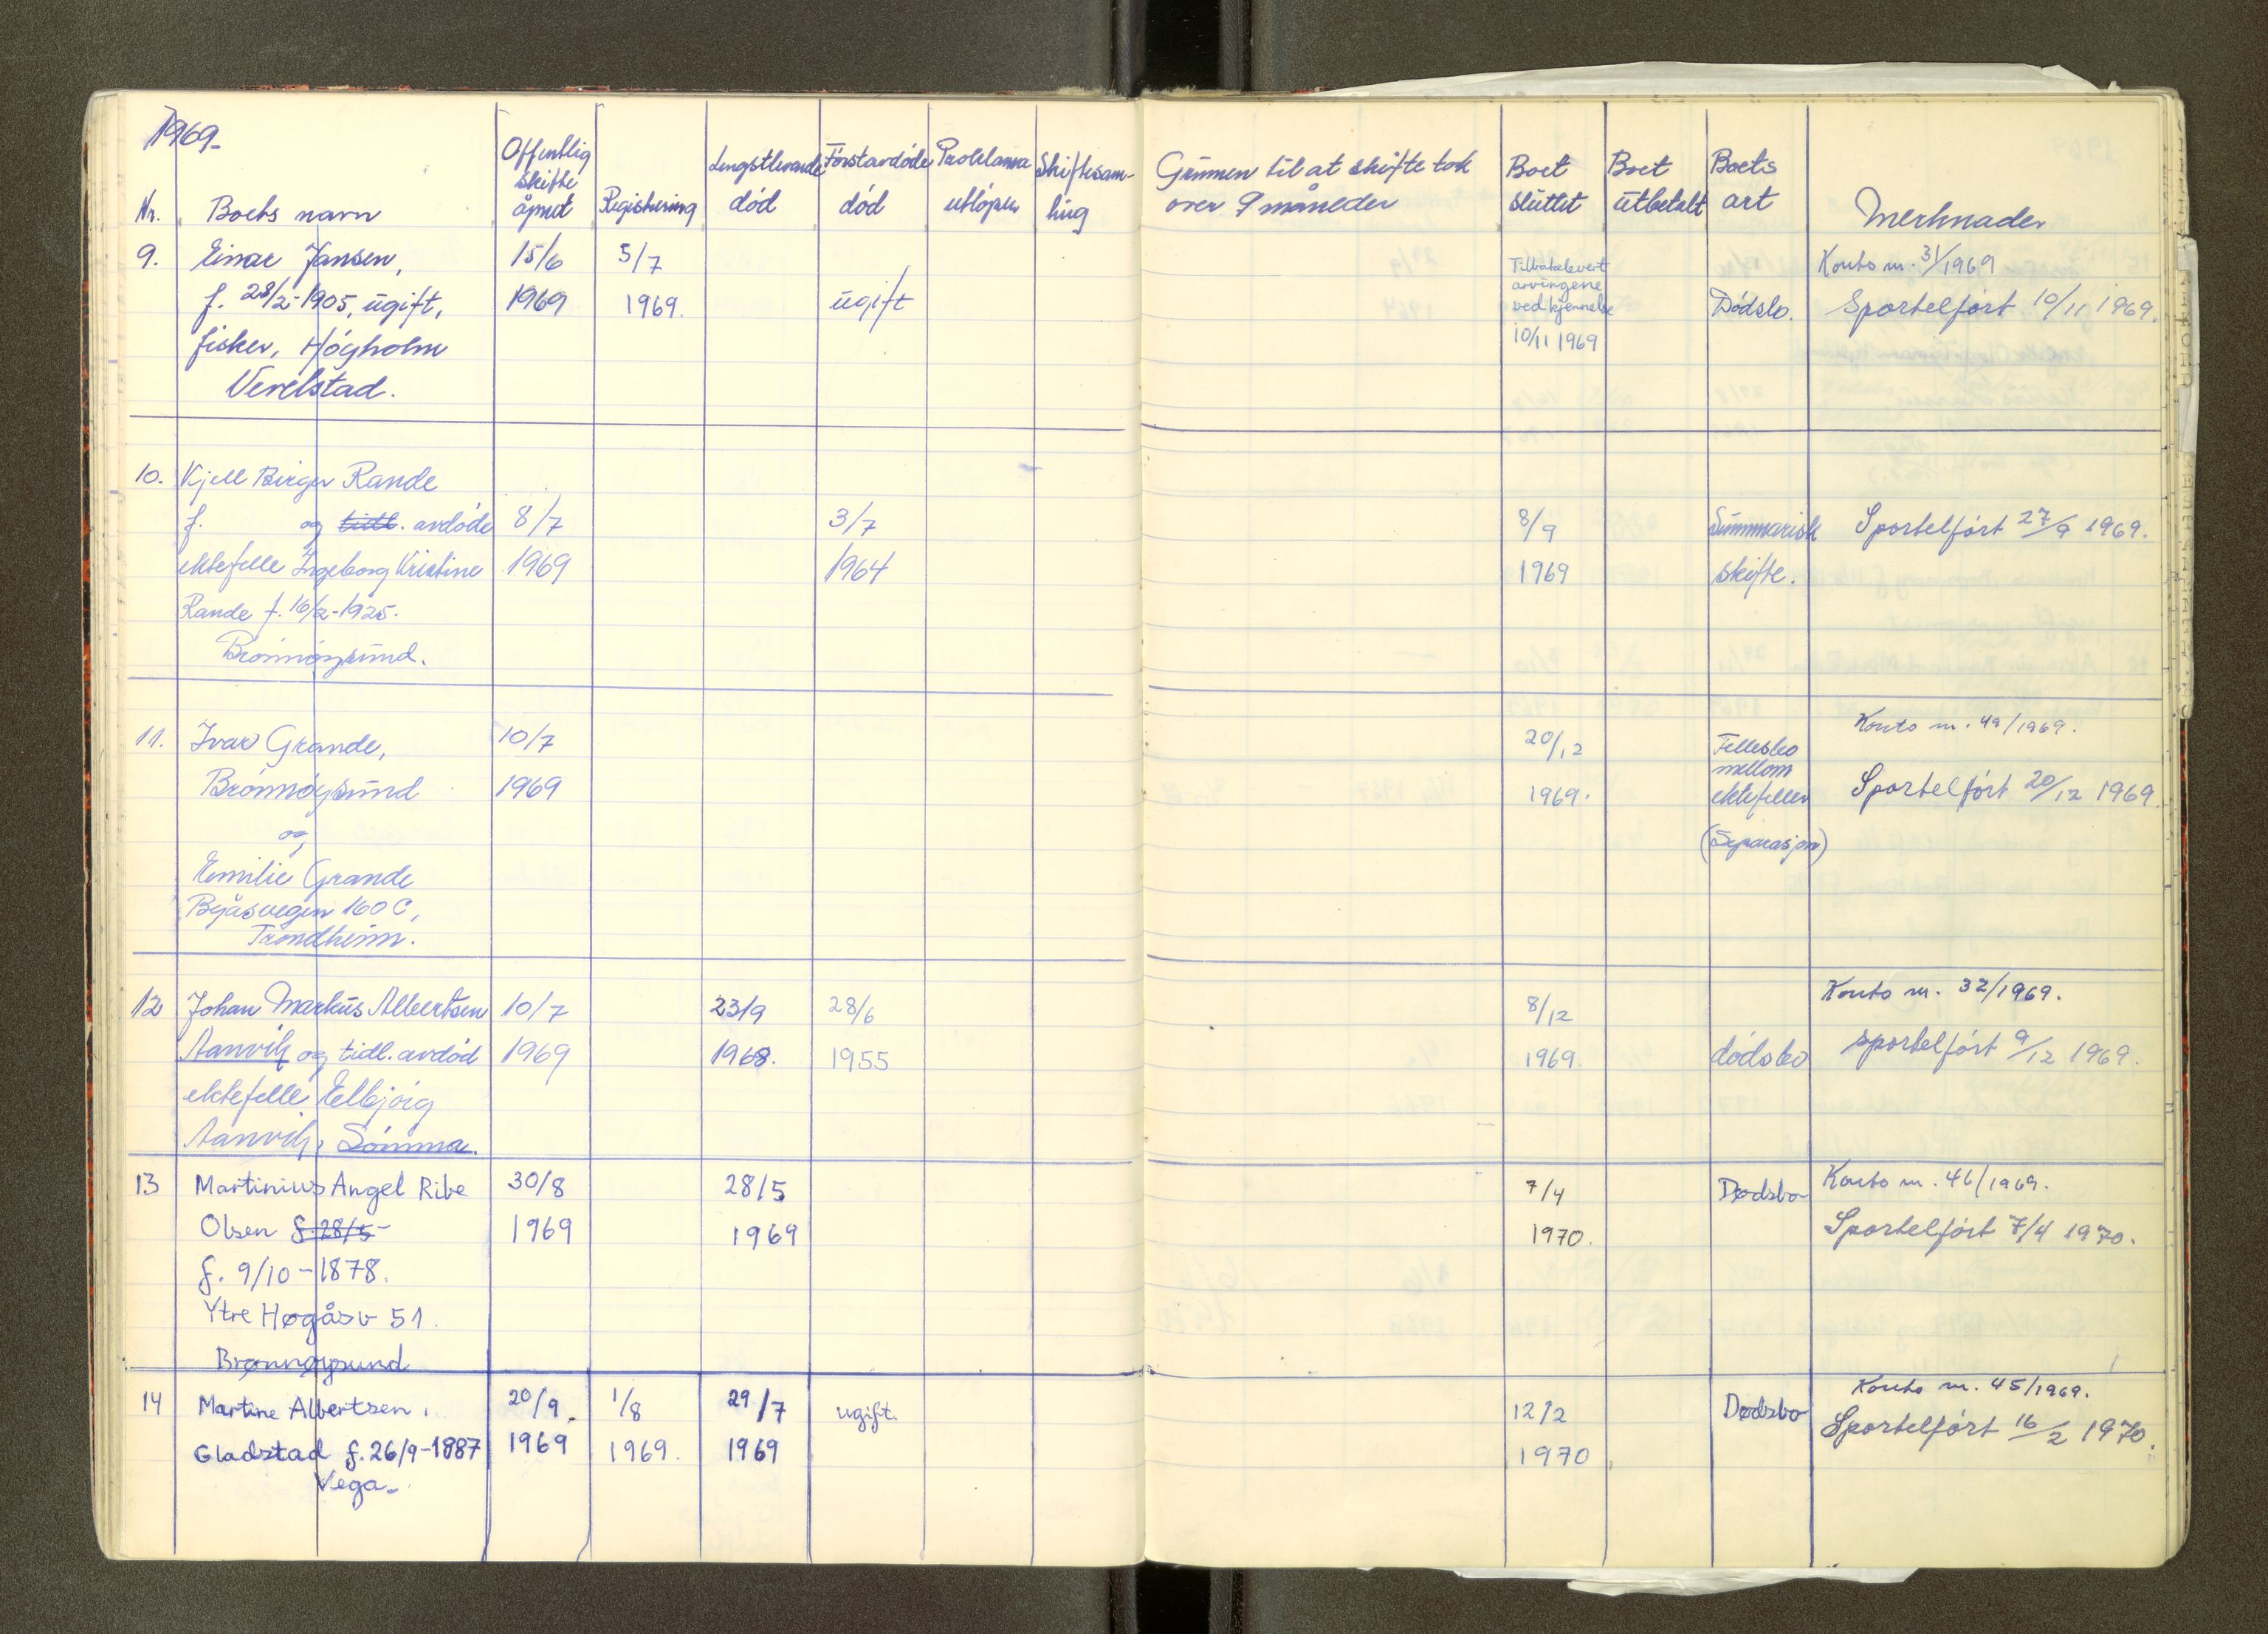 1969.
Nr. Boets navn
Offentlig skifte åpnet
Registrering
Lengstlevende død
Førstavdøde død
Proklama utløper
Skiftesamling
Grunnen til at skifte tok over 9 måneder
Boet sluttet
Boet utbetalt
Boets art
Merknader
9. Einar Jansen, 15/6 5/7 Tilbakelevert Konto nr. 31/1969
arvingene
f. 28/2-1905, ugift, 1969 1969. ugift ved kjennelse Dødsbo. Sportelført 10/11 1969.
fisker, Høgholm 10/11 1969
Verelstad.
10. Kjell Birger Rande
f. og tidl. avdøde 8/7 3/7 8/9 Summarisk Sportelført 27/9 1969.
ektefelle Ingeborg Kristine 1969 1964 1969 skifte.
Rande f. 16/2-1925.
Brønnøysund.
11. Ivar Grande, 10/7 20/12 Fellesbo Konto nr. 49/1969.
mellom
Brønnøysund 1969 1969. ektefeller Sportelført 20/12 1969.
og (Separasjon)
Emilie Grande
Byåsvegen 160 C,
Trondheim.
12 Johan Markus Albertsen 10/7 23/9 28/6 8/12 Konto nr. 32/1969.
Aanvik og tidl. avdød 1969 1968. 1955 1969. dødsbo sportelført 9/12 1969.
ektefelle Elbjørg
Aanvik, Sømna.
13 Martinius Angel Ribe 30/8 28/5 7/4 Dødsbo Konto nr. 46/1969.
Olsen f 28/5- 1969 1969 1970. Sportelført 7/4 1970.
f. 9/10-1878.
Ytre Høgåsv 51.
Brønnøysund
14 Martine Albertsen, 20/9. 1/8 29/7 ugift. 12/2 Dødsbo Konto nr. 45/1969.
Gladstad f. 26/9-1887 1969 1969. 1969 1970 Sportelført 16/2 1970.
Vega.